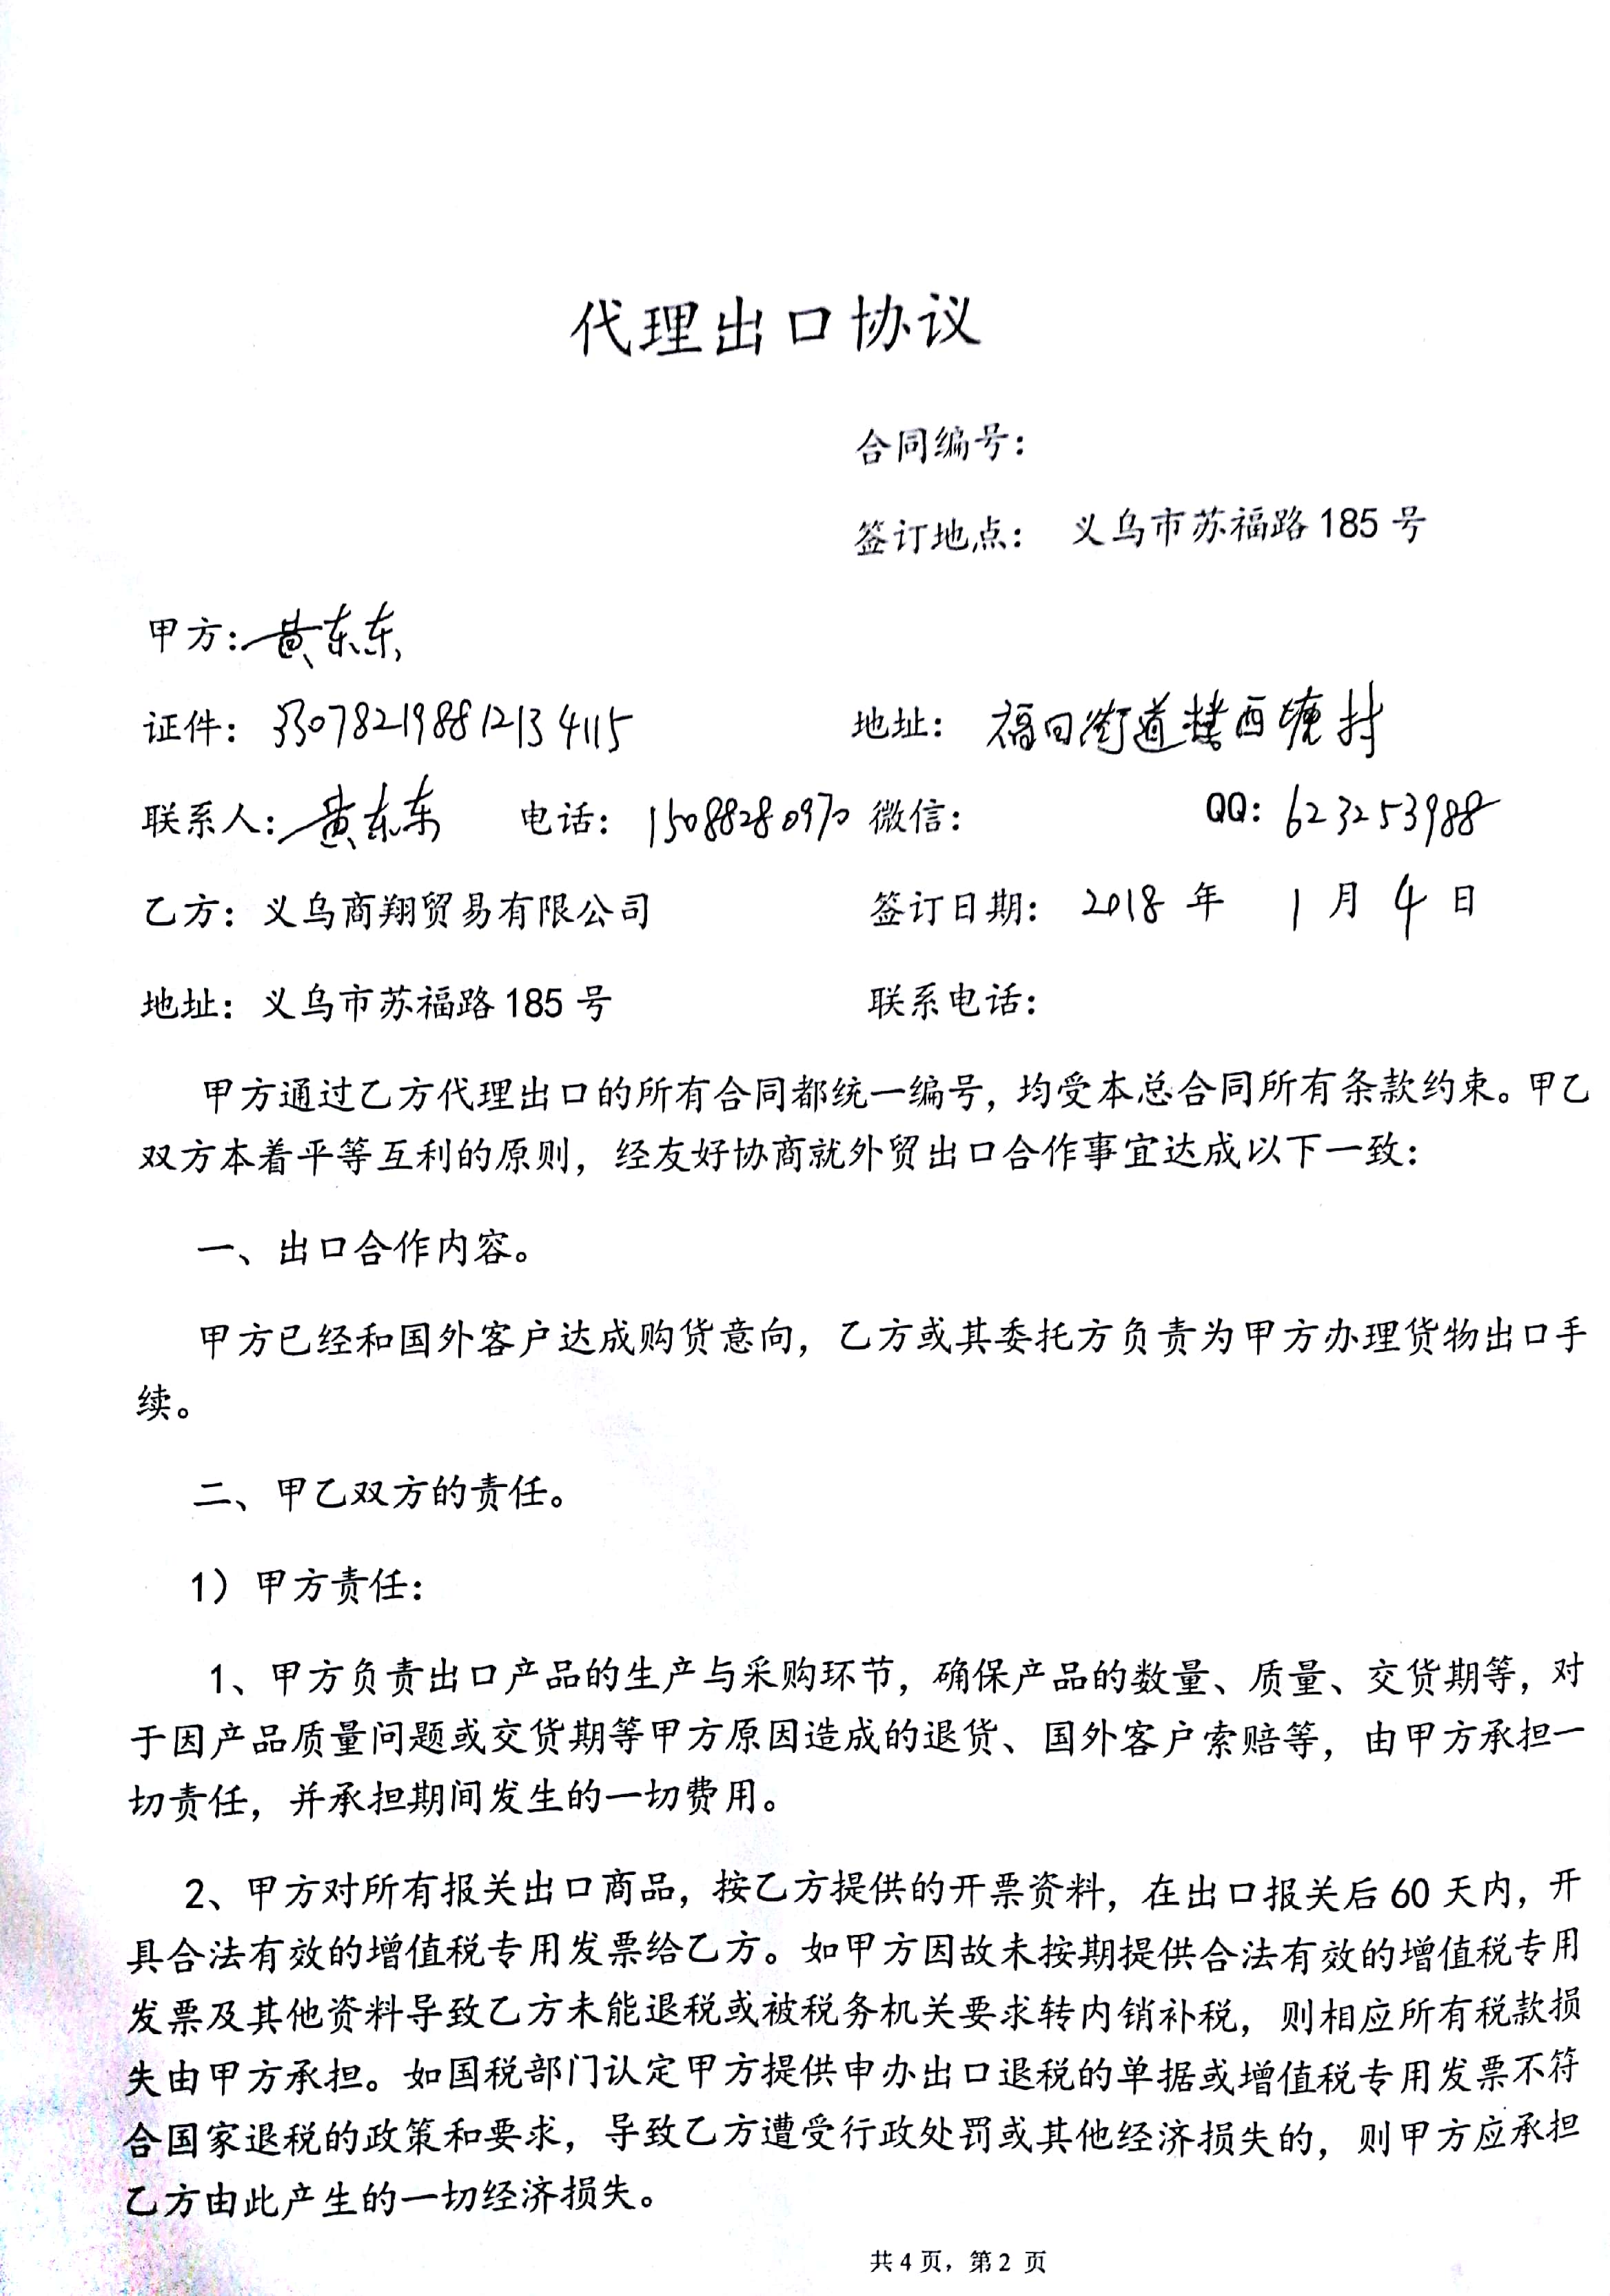 代理出口协议
合同编号：
签订地点： 义乌市苏福路 185 号
甲方：黄东东
证件：330782198812134115 地址：福田街道楼西塘村
联系人：黄东东 电话：15088280970 微信： QQ：623253988
乙方：义乌商翔贸易有限公司 签订日期： 2018 年 1 月 4 日
地址：义乌市苏福路 185 号 联系电话：
甲方通过乙方代理出口的所有合同都统一编号，均受本总合同所有条款约束。甲乙
双方本着平等互利的原则，经友好协商就外贸出口合作事宜达成以下一致：
一、出口合作内容。
甲方已经和国外客户达成购货意向，乙方或其委托方负责为甲方办理货物出口手
续。
二、甲乙双方的责任。
1）甲方责任：
1、甲方负责出口产品的生产与采购环节，确保产品的数量、质量、交货期等，对
于因产品质量问题或交货期等甲方原因造成的退货、国外客户索赔等，由甲方承担一
切责任，并承担期间发生的一切费用。
2、甲方对所有报关出口商品，按乙方提供的开票资料，在出口报关后 60 天内，开
具合法有效的增值税专用发票给乙方。如甲方因故未按期提供合法有效的增值税专用
发票及其他资料导致乙方未能退税或被税务机关要求转内销补税，则相应所有税款损
失由甲方承担。如国税部门认定甲方提供申办出口退税的单据或增值税专用发票不符
合国家退税的政策和要求，导致乙方遭受行政处罚或其他经济损失的，则甲方应承担
乙方由此产生的一切经济损失。
共 4 页，第 2 页